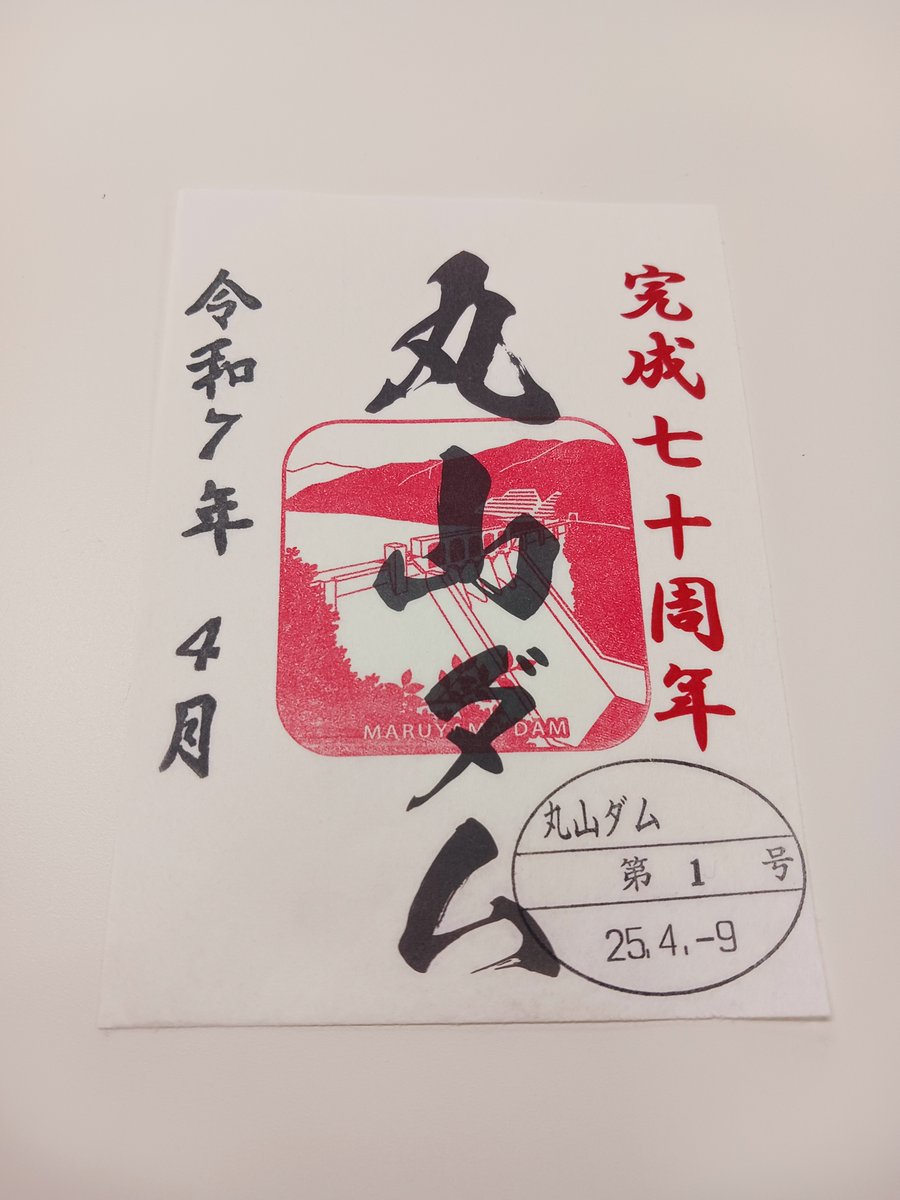 完成七十周年
丸山ダム
令和7年 4月
MARUYAMA DAM
丸山ダム
第 1 号
25.4.-9